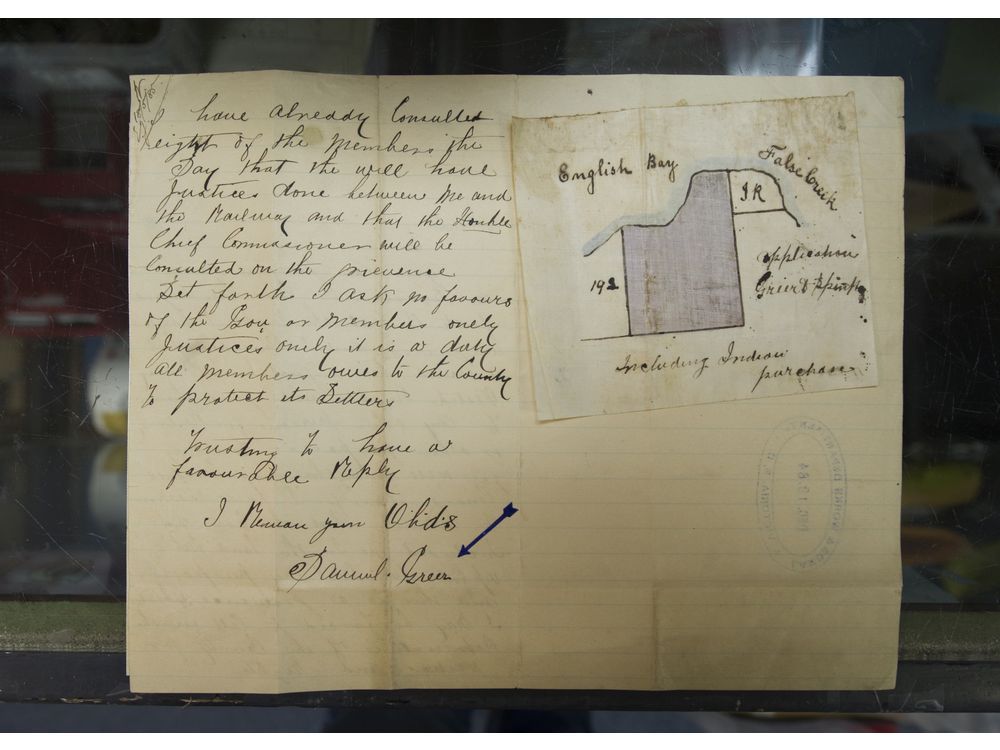 I have Already Consulted
height of the Members the
Say that the will have
Justices done between Me and
the Railway and that the Honble
Chief Commasioner will be
Consulted on the grievence
Set forth I ask no favours
of the Gov or Members onely
Justices onely it is a duty
all Members owes to the County
to protect its Settlers
trusting to have a
favourable Reply
I Remain your Obids
Samuel Greer
English Bay
False Creek
I R
192
application
Greer &
Including Indian
purchase